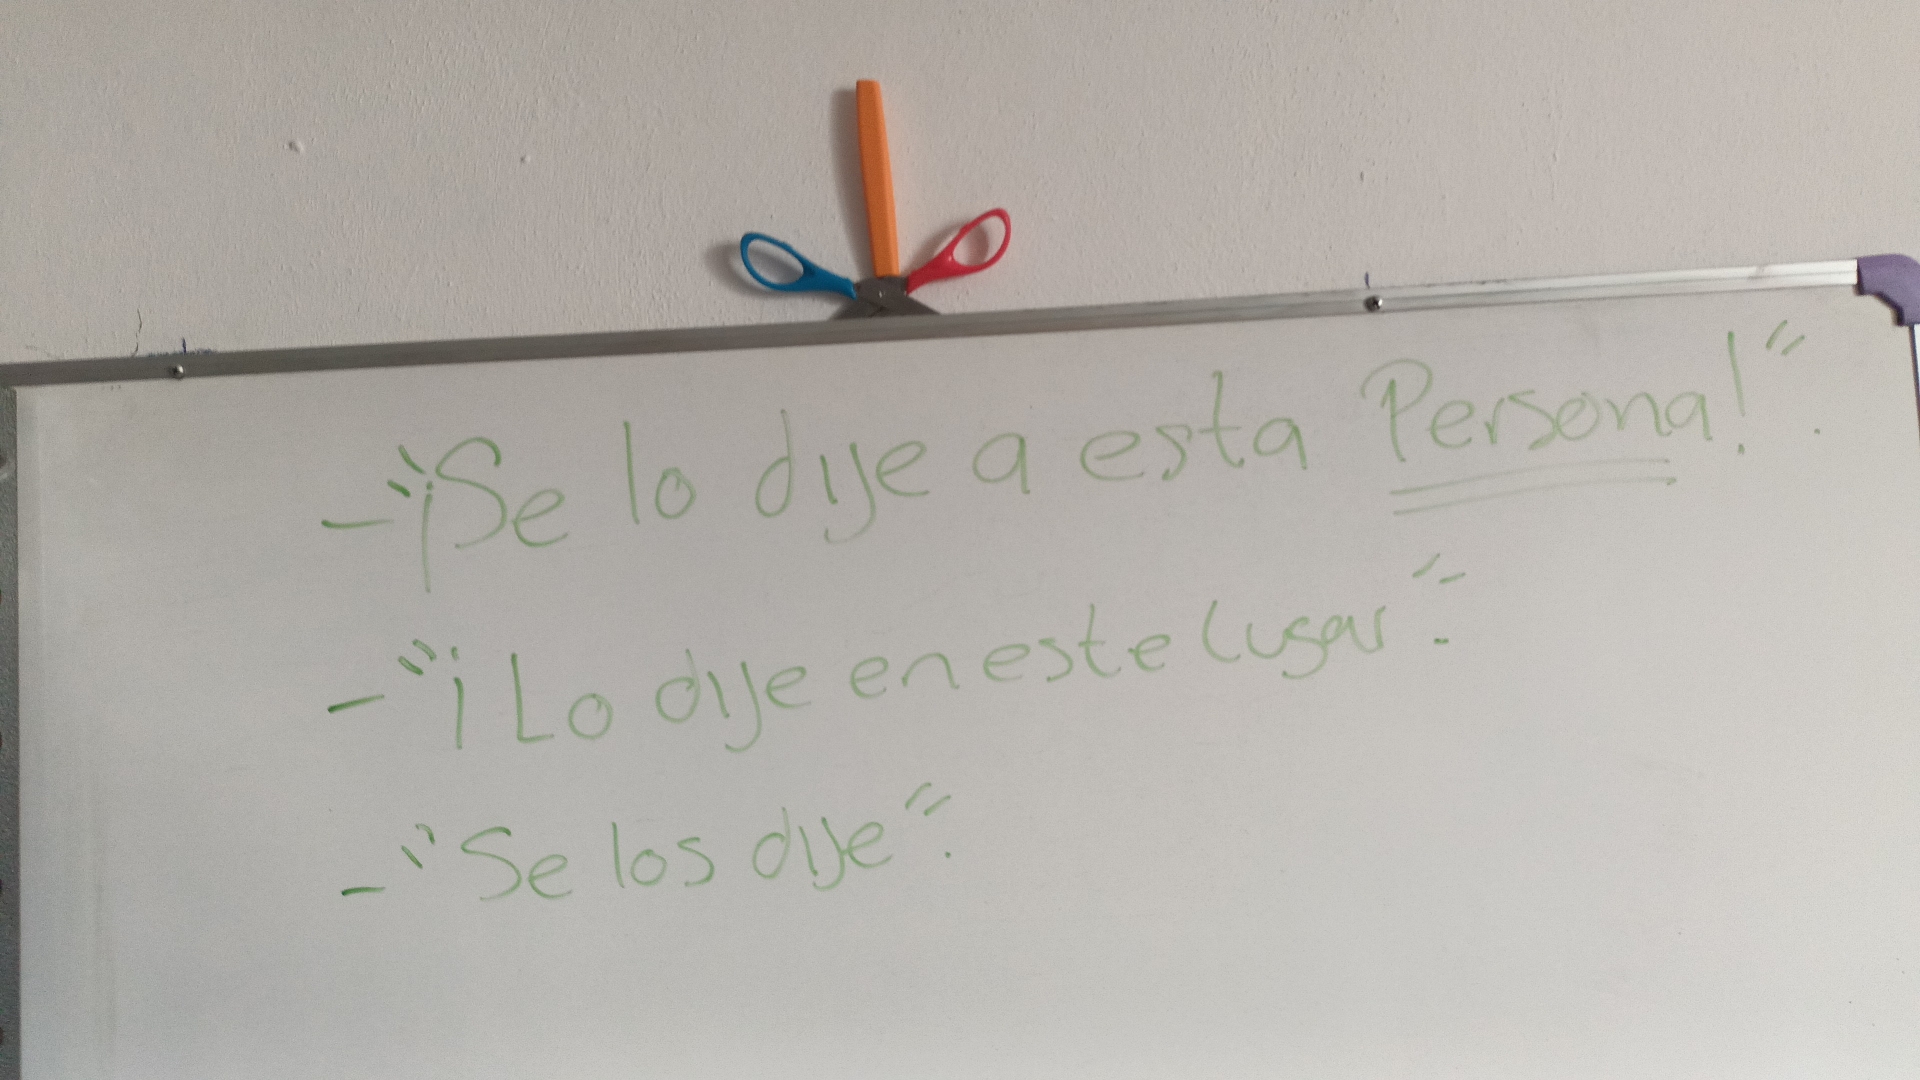 - "¡Se lo dije a esta Persona!".
- "¡Lo dije en este lugar".
- "Se los dije".